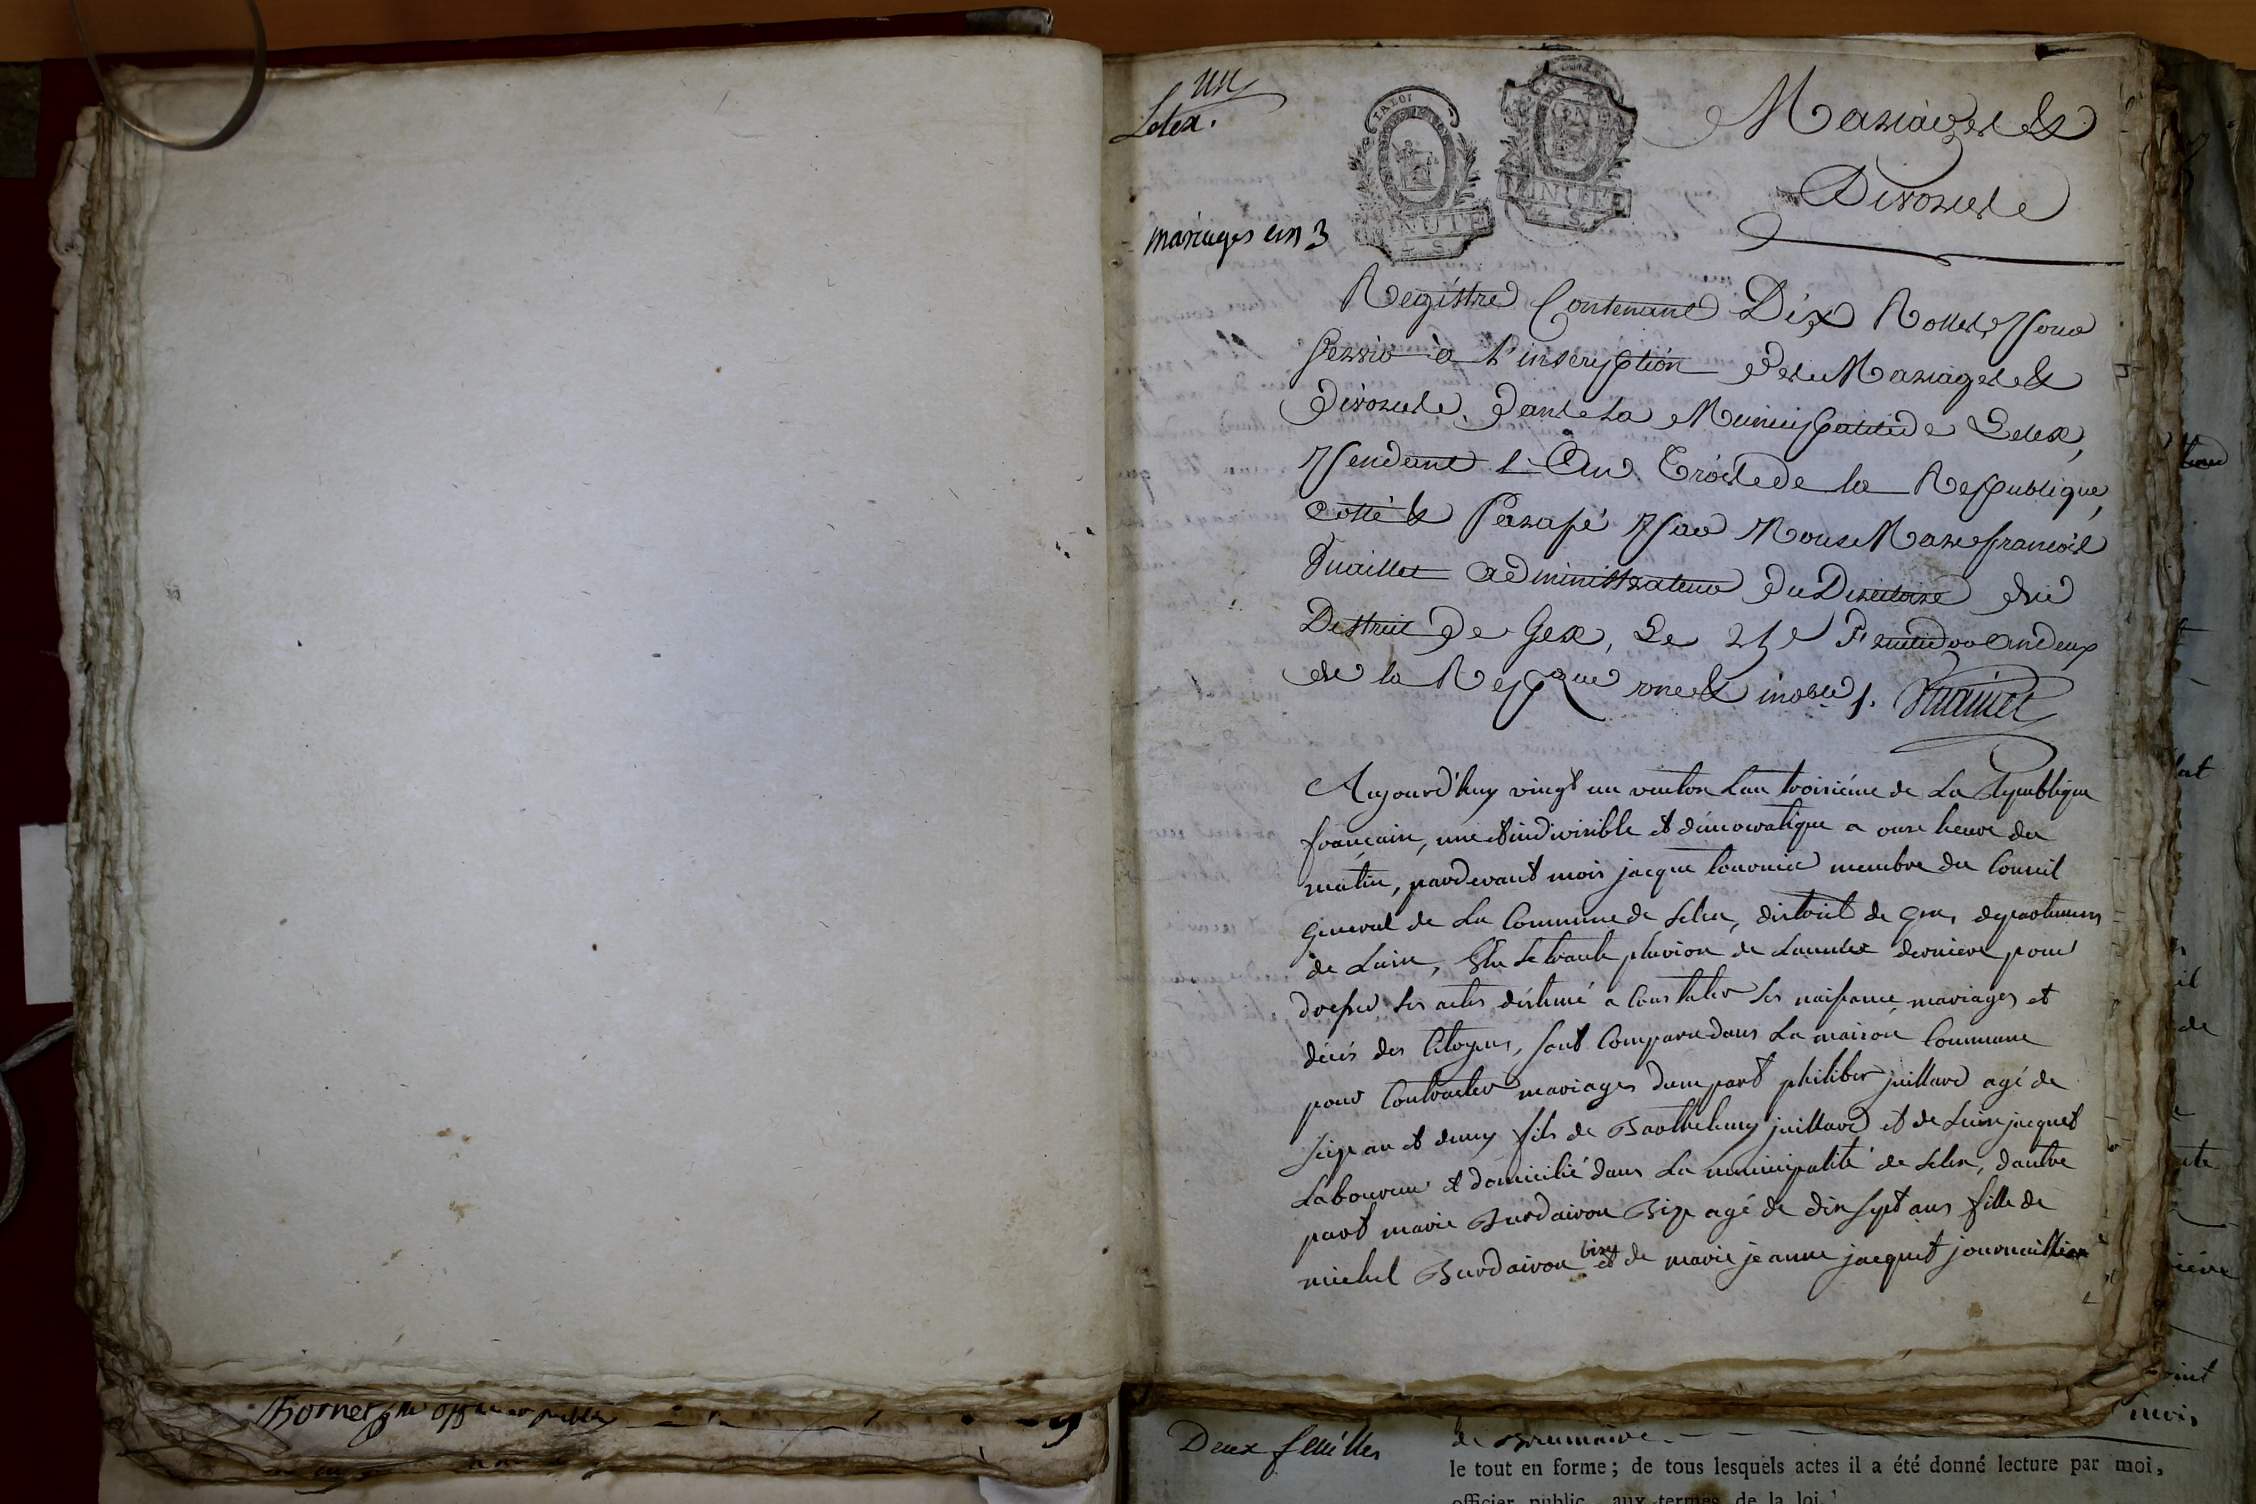 un
Lelex.
LA LOI
MINUTE
4 S
MINUTE
4 S
Mariages &
Divorces
mariages an 3
Registre Contenant Dix Rolles, pour
servir à l'inscription des Mariages &
divorces, dans la Municipalité de Lelex,
pendant l'An Trois de la Republique,
cotté & Parafé par Nous Marc françois
administrateur du Directoire du
District de Gex, Le Fructidor an deux
de la Repque une & indble.
Aujourd'huy vingt un ventos Lan troisième de La Republique
française, une et indivisible et démocratique a onze heure du
matin, pardevant mois jacque tournier membre du Conseil
general de La Commune de Lelex, district de Gex, departemens
de Lain, Elu Le trante pluvios de Lannée derniere pour
dresser Les actes destiné a Constater Les naissance, mariages et
décès des Citoyens, sont Comparu dans La maison Commune
pour Contracter mariages dune part philiber juillard agé de
seize an et demy fils de Barthelemy juillard et de jacquet
Laboureur et domicilié dans La municipalité de Lelex, dautre
part marie Burdairon Bize agé de dix sept ans fille de
michel Burdairon bize et de marie jeanne jacquet journaillier
officier public
Deux feuilles
de Brumaire
le tout en forme ; de tous lesquels actes il a été donné lecture par moi,
officier public, aux termes de la loi.